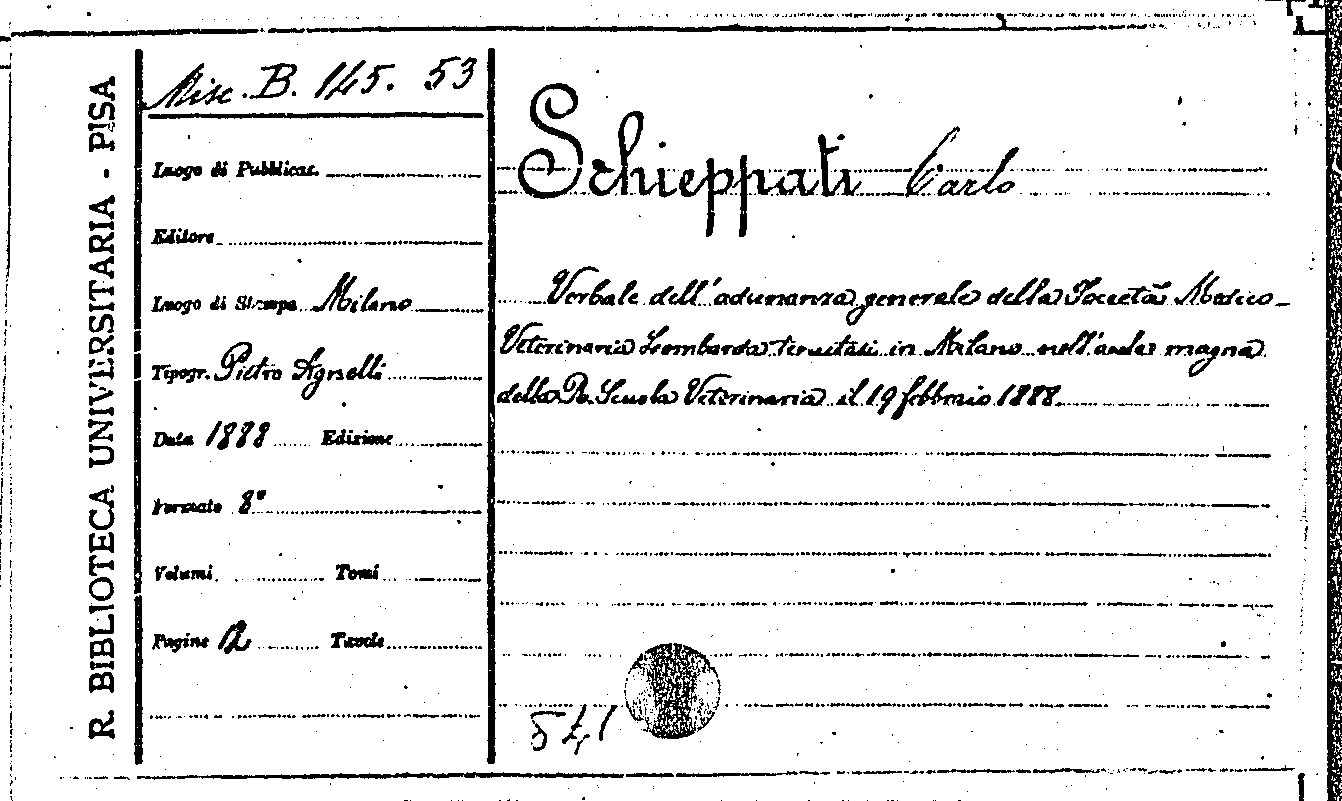 R. BIBLIOTECA UNIVERSITARIA - PISA
Misc. B. 145. 53
Luogo di Pubblicaz.
Editore
Luogo di Stampa Milano
Tipogr. Pietro Agnelli
Data 1888 Edizione
Formato 8°
Volumi Tomi
Pagine 12 Tavole
Schieppati Carlo
Verbale dell'adunanza generale della Società Medico-
Veterinaria Lombarda tenutasi in Milano nell'aula magna
della R. Scuola Veterinaria il 19 febbraio 1888
541